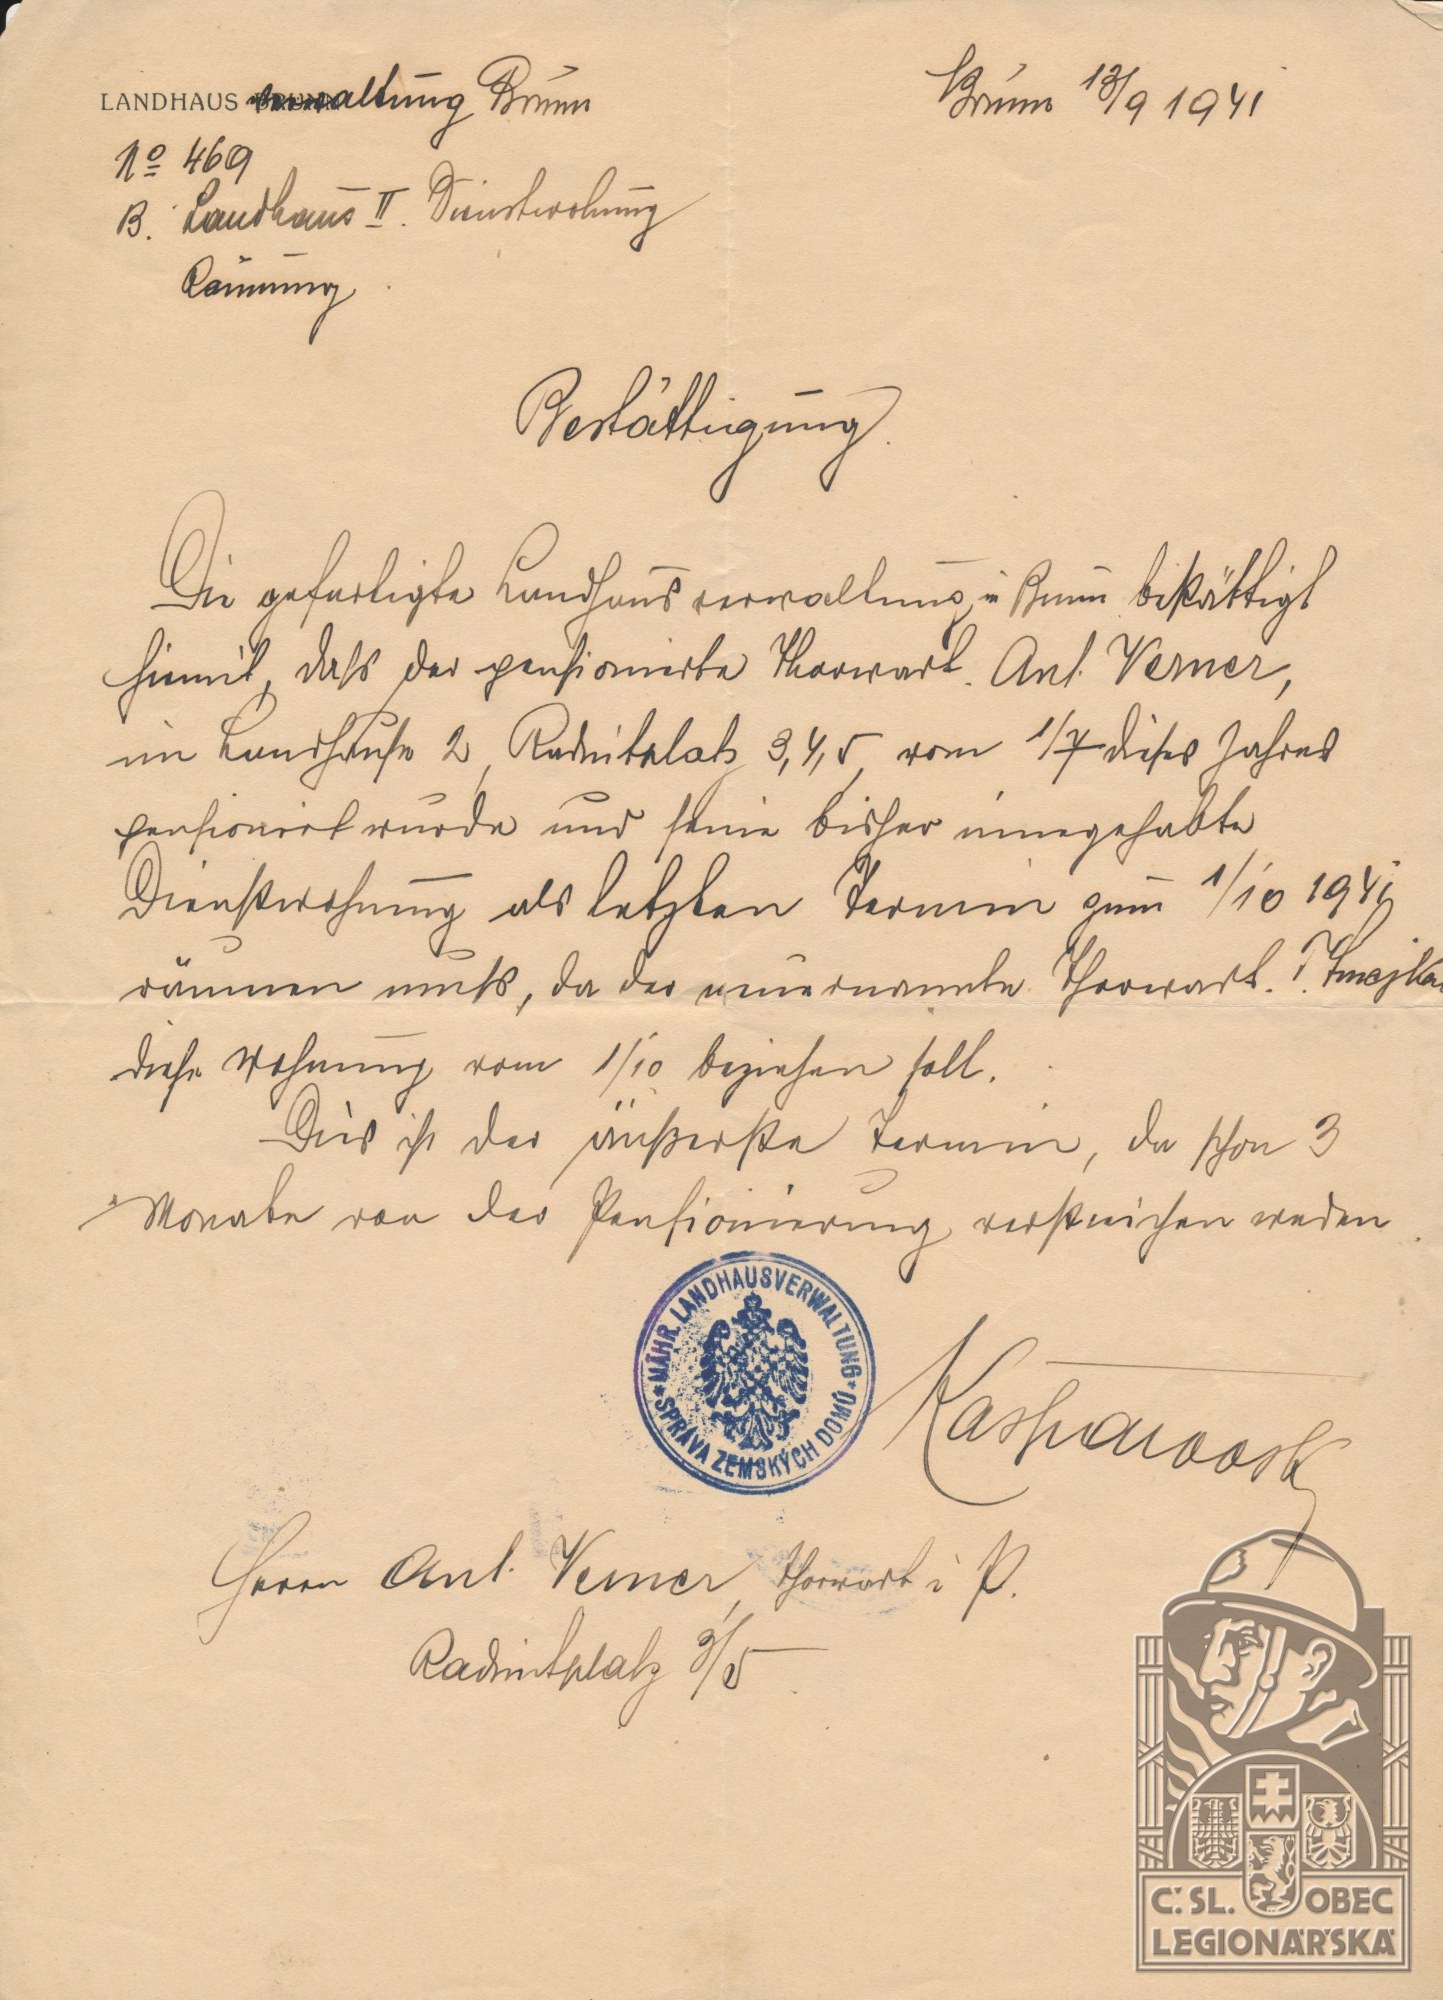 LANDHAUS verwaltung Brünn
Brünn 13/9 1941
No 469
B. Landhaus II. Dienstwohnung
Räumung
Bestättigung.
Die gefertigte Landhausverwaltung in Brünn bestättigt
hiemit, daß der pensionierte Thorwart. Ant. Verner,
im Landhause 2, Radwitplatz 3, 4, 5, vom 1/7 dieses Jahres
pensioniert wurde und seine bisher innegehabte
Dienstwohnung als letzten Termin zum 1/10 1941
räumen muß, da der neuernannte Thorwart.
diese Wohnung vom 1/10 beziehen soll.
Dies ist der äußerste Termin, da schon 3
Monate von der Pensionierung verstrichen werden.
MÄHR. LANDHAUSVERWALTUNG
SPRÁVA ZEMSKÝCH DOMŮ
Herrn Ant. Verner, Thorwart i P.
Radwitplatz 3/5
Č. SL. OBEC
LEGIONÁŘSKÁ